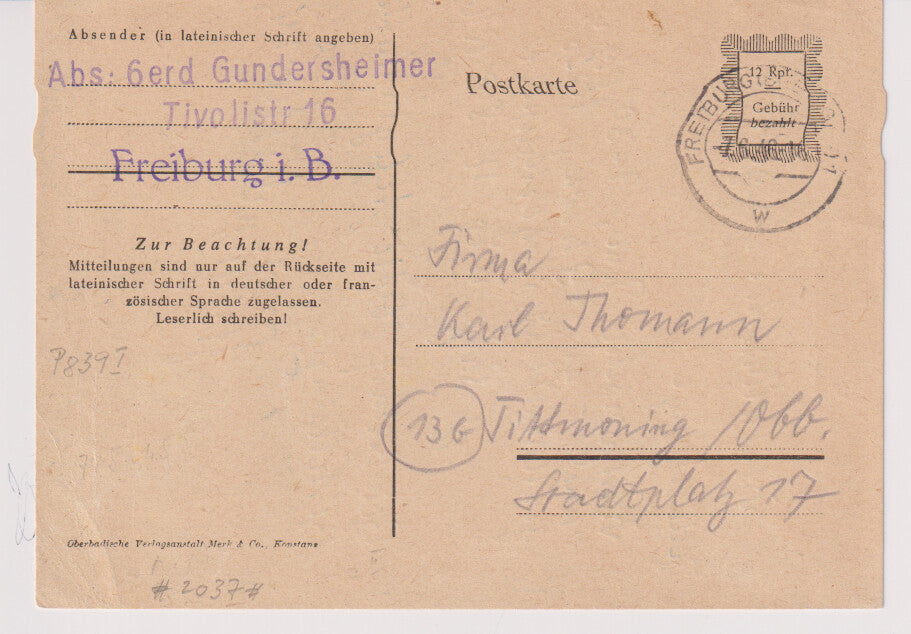 Absender (in lateinischer Schrift angeben)
Abs: Gerd Gundersheimer
Tivolistr 16
Freiburg i. B.
Zur Beachtung!
Mitteilungen sind nur auf der Rückseite mit
lateinischer Schrift in deutscher oder fran-
zösischer Sprache zugelassen.
Leserlich schreiben!
P839 I
Oberbadische Verlagsanstalt Merk & Co., Konstanz
# 2037 #
Postkarte
12 Rpf.
Gebühr
bezahlt
FREIBURG
w
Firma
Karl Thomann
13b Tittmoning / Obb.
Stadtplatz 17